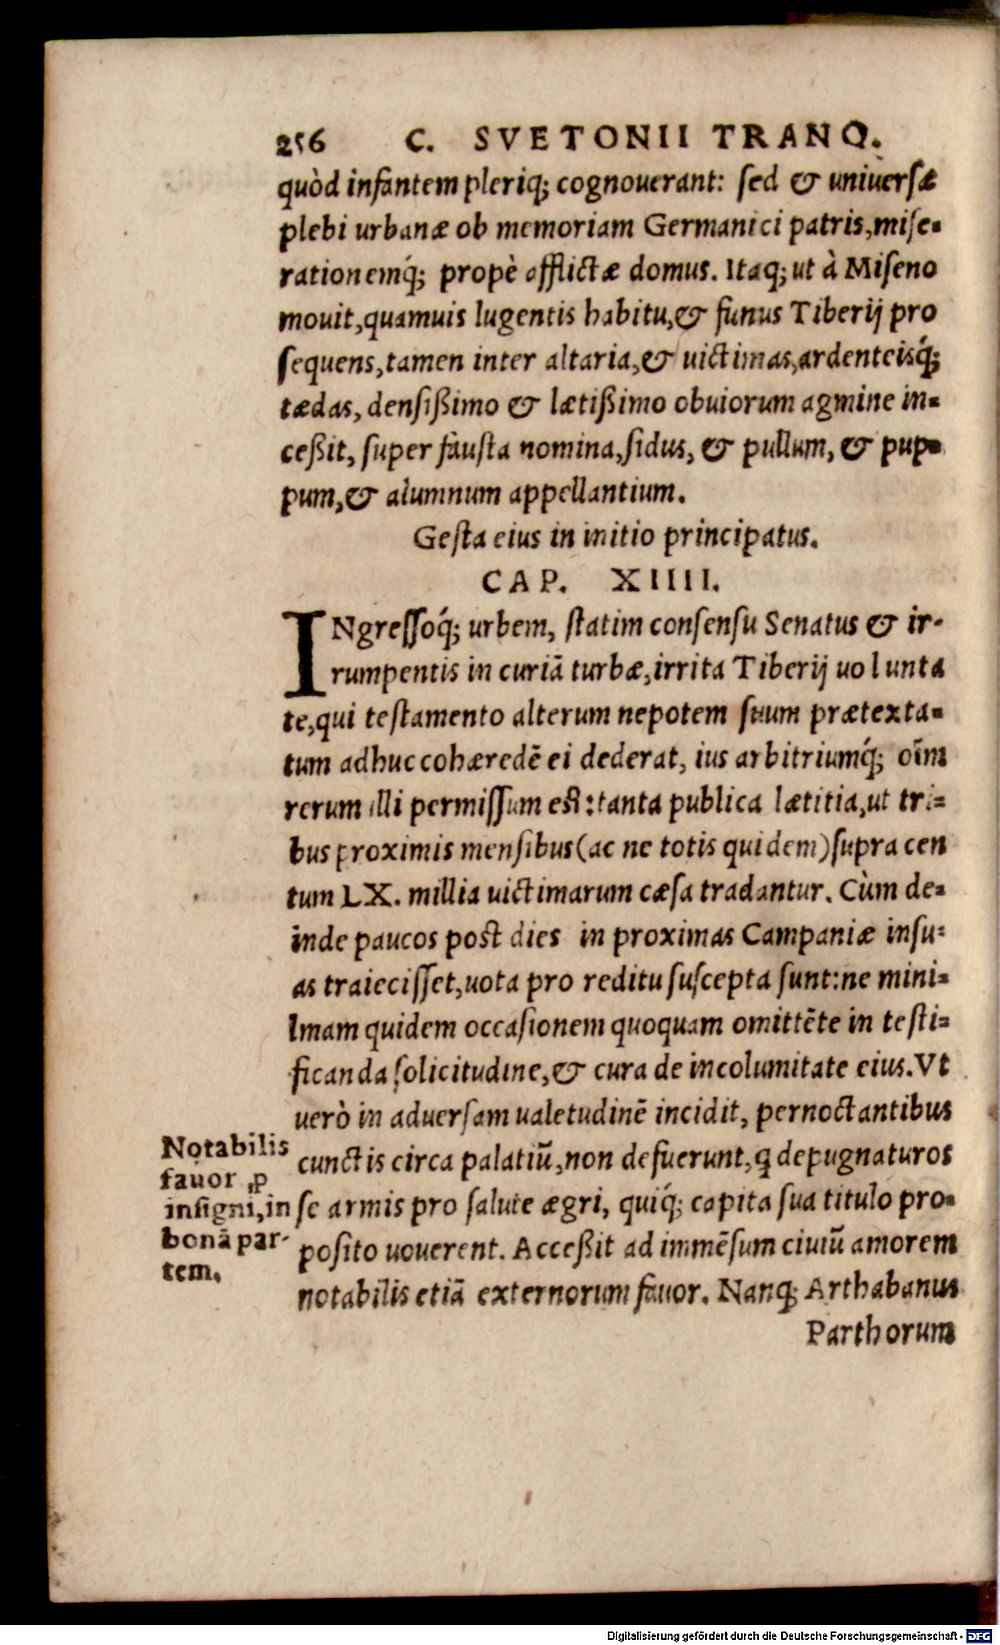 256 C. SVETONII TRANQ.
quòd infantem pleriq; cognouerant: sed & uniuersæ
plebi urbanæ ob memoriam Germanici patris, mise-
rationemq́; propè afflictæ domus. Itaq; ut à Miseno
mouit, quamuis lugentis habitu, & funus Tiberij pro
sequens, tamen inter altaria, & uictimas, ardenteisq́;
tædas, densißimo & lætißimo obuiorum agmine in-
ceßit, super fausta nomina, sidus, & pullum, & pup-
pum, & alumnum appellantium.
Gesta eius in initio principatus.
CAP. XIIII.
INgressoq́; urbem, statim consensu Senatus & ir-
rumpentis in curiā turbæ, irrita Tiberij uolunta
te, qui testamento alterum nepotem suum prætexta-
tum adhuc cohæredē ei dederat, ius arbitriumq́; oīm
rerum illi permissum est: tanta publica lætitia, ut tri-
bus proximis mensibus (ac ne totis quidem) supra cen
tum LX. millia uictimarum cæsa tradantur. Cùm de-
inde paucos post dies in proximas Campaniæ insu-
as traiecisset, uota pro reditu suscepta sunt: ne mini-
lmam quidem occasionem quoquam omittēte in testi-
ficanda solicitudine, & cura de incolumitate eius. Vt
uerò in aduersam ualetudinē incidit, pernoctantibus
cunctis circa palatiū, non defuerunt, q depugnaturos
se armis pro salute ægri, quiq́; capita sua titulo pro-
posito uouerent. Acceßit ad immēsum ciuiū amorem
notabilis etiā externorum fauor. Nanq; Arthabanus
Parthorum
Notabilis
fauor ꝓ
insigni, in
bonā par-
tem.
Digitalisierung gefördert durch die Deutsche Forschungsgemeinschaft - DFG